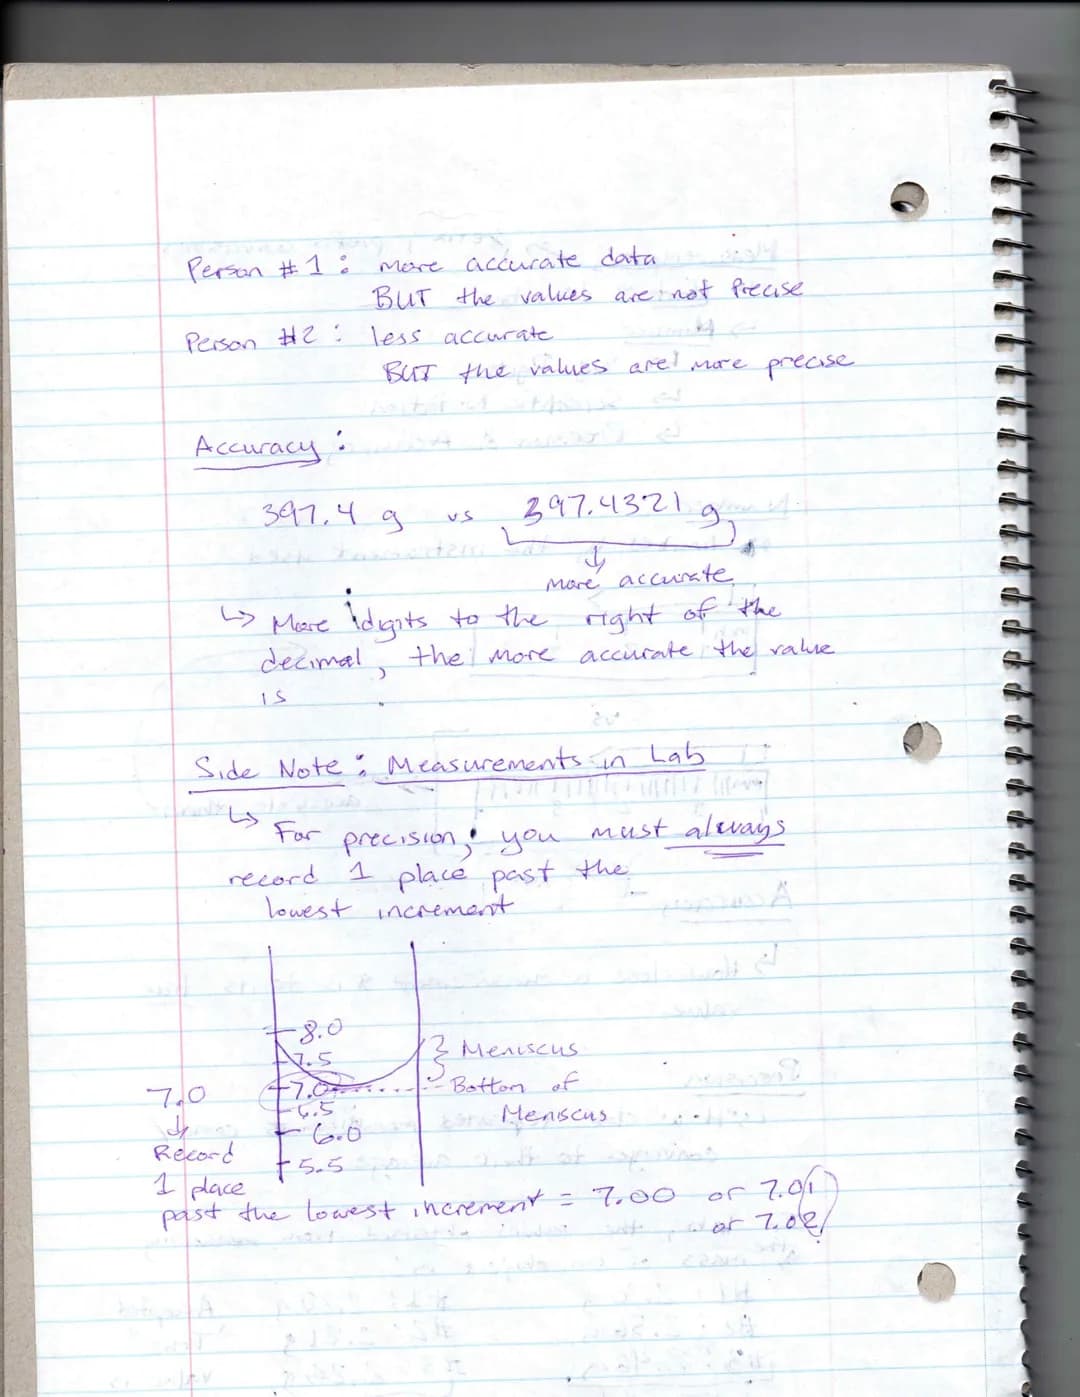 Person #1: more accurate data
BUT the values are not Precise
Person #2: less accurate
BUT the values are more precise
Accuracy:
397.4 g vs 397.4321 g
more accurate
↳ More digits to the right of the
decimal, the more accurate the value
is
Side Note: Measurements in Lab
↳ For precision, you must always
record 1 place past the
lowest increment
8.0
7.5
7.0
6.5
6.0
5.5
Meniscus
Bottom of
Meniscus
7.0
↓
Record
1 place
past the lowest increment = 7.00 or 7.01
or 7.02